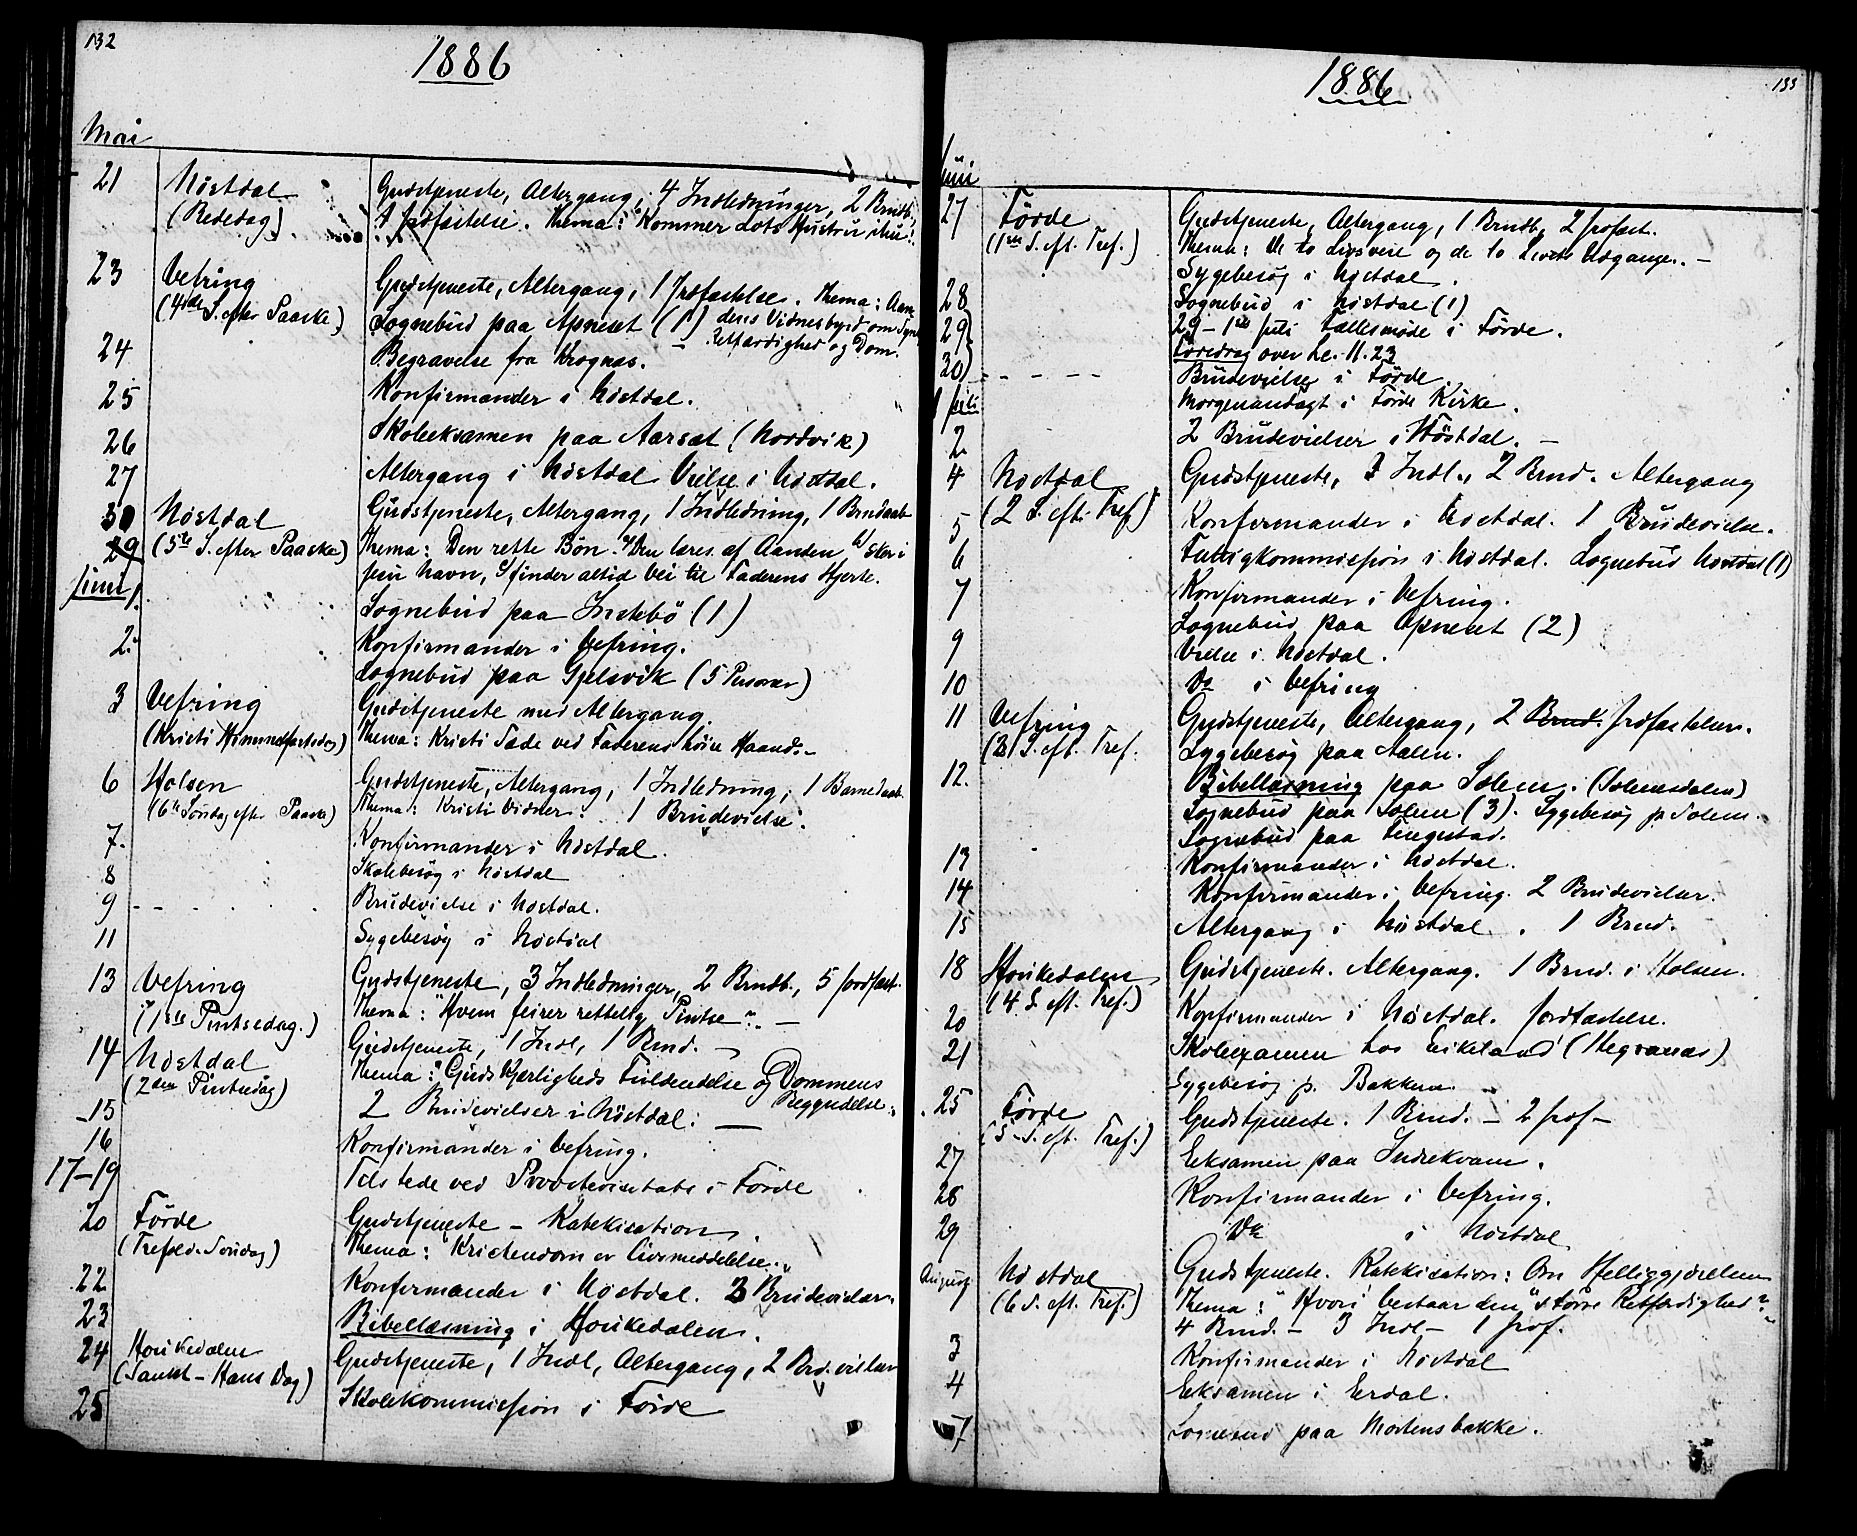 132
1886
Mai
21 Nöstdal Gudstjeneste, Altergang, 4 Indledninger, 2 Brndb.,
(Bededag) 1 Jrdfæstelse. Thema: "Kommer Lots Hustru ihu".
23 Vefring Gudstjeneste, Altergang, 1 Jrdfæstelse. Thema: Aan-
(4de S. efter Paaske) Sognebud paa Apneset (1) dens Vidnesbyrd om Synd
Retfærdighed og Dom.
24 Begravelse fra Krognæs.
25 Konfirmander i Nöstdal.
26 Skoleeksamen paa Aarsæt (Nordvik)
27 Altergang i Nöstdal Vielse i Nöstdal.
30 Nöstdal Gudstjeneste, Altergang, 1 Indledning, 1 Brndaab
29 (5te S. efter Paaske) Thema: Den rette Bön. a) Den læres af Aanden b) sker i
Jesu Navn, c) finder altid Vei til Faderens Hjerte.
Juni 1. Sognebud paa Indrebö (1)
2. Konfirmander i Vefring.
Sognebud paa Gjelsvik (5 Personer)
3 Vefring Gudstjeneste med Altergang.
(Kristi Himmelfartsdag) Thema: Kristi Sæde ved Faderens höire Haand.-
6 Holsen Gudstjeneste, Altergang, 1 Indledning, 1 Barnedaab.
(6te Söndag efter Paaske) Thema: Kristi Vidner. 1 Brudevielse.
7. Konfirmander i Nöstdal.
8 Skolebesög i Nöstdal
9 Brudevielse i Nöstdal.
11 Sygebesög i Nöstdal
13 Vefring Gudstjeneste, 3 Indledninger, 2 Brndb., 5 Jordfæst.
(1ste Pintsedag.) Thema: "Hvem feirer rettelig Pintse". -
14 Nöstdal Gudstjeneste, 1 Indl, 1 Brnd. -
(2den Pintsedag) Thema: "Guds Kjærligheds Fuldendelse og Dommens
Begyndelse".
15 2 Brudevielser i Nöstdal. -
16 Konfirmander i Vefring.
17-19 Tilstede ved Provstevisitats i Förde
20 Förde Gudstjeneste - Katekisation.
(Trefold. Söndag) Thema: "Kristendom er Livsmeddelelse."
22 Konfirmander i Nöstdal. 3 Brudevielser.
23 Bibellæsning i Houkedalen.
24 Houkedalen Gudstjeneste, 1 Indl, Altergang, 2 Brd.vielser
(Sankt-Hans Dag)
25 Skolekommission i Förde
133
1886
Juni
27 Förde Gudstjeneste, Altergang, 1 Brndb, 2 Jrdfæst.
(1ste S. eft. Tref.) Thema: De to Livsveie og de to Livets Udgange. -
Sygebesög i Nöstdal.
28 Sognebud i Nöstdal (1)
29 29 - 1ste Juli Fællesmöde i Förde.
30 Foredrag over Lc. 11.23
Brudevielse i Förde
1 Juli Morgenandagt i Förde Kirke.
2 2 Brudevielser i Nöstdal. -
4 Nöstdal Gudstjeneste, 3 Indl., 2 Brnd. Altergang
(2 S. eft. Tref.)
5 Konfirmander i Nöstdal. 1 Brudevielse.
6 Fattigkommission i Nöstdal. Sognebud Nöstdal (1)
7 Konfirmander i Vefring.
Sognebud paa Apneset (2)
9 Vielse i Nöstdal.
10 Do i Vefring
11 Vefring Gudstjeneste, Altergang, 2 Brnd. Jrdfæstelser.
(3 S. eft. Tref. Sygebesög paa Aalen.
12. Bibellæsning paa Solem. (Solemsdalen)
Sognebud paa Solem (3). Sygebesög p. Solem.
Sognebud paa Tingstad.
13 Konfirmander i Nöstdal.
14 Konfirmander i Vefring. 2 Brudevielser.
15 Altergang i Nöstdal. 1 Brnd.
18 Houkedalen Gudstjeneste. Altergang. 1 Brnd. i Holsen.
(4 S. eft. Tref.)
20 Konfirmander i Nöstdal. Jordfæstelse.
21 Skoleexamen hos Eikeland (Hegrenæs)
Sygebesög p. Bakken.
25 Förde Gudstjeneste. 1 Brnd. - 2 Jrdf -
(5 S. eft. Tref.)
27 Eksamen paa Indrekvam.
28 Konfirmander i Vefring.
29 Do i Nöstdal
August
1 Nöstdal Gudstjeneste. Katekisation: Om Helliggjörelsen
(6 S. eft. Tref.) Thema: "Hvori bestaar den "större Retfærdighed"?
4 Brnd. - 3 Indl - 1 Jrdf.
3 Konfirmander i Nöstdal
4 Eksamen i Erdal.
7 Sognebud paa Mortensbakke.